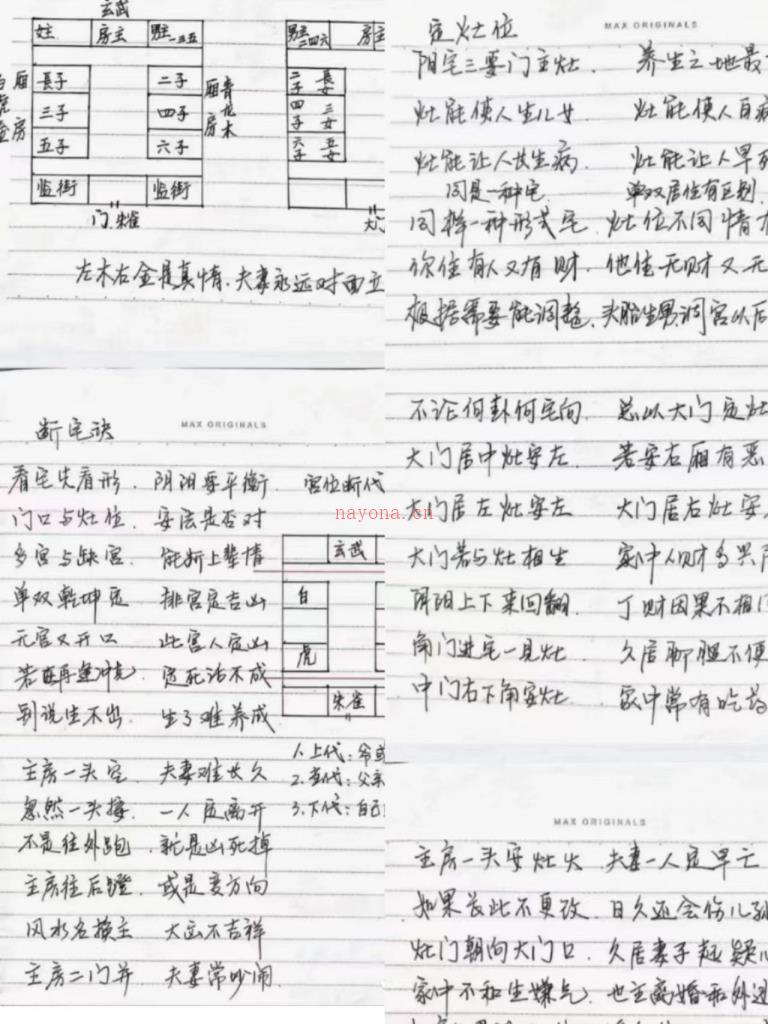 玄武
姓 房主 男主一三五
白虎金 厢房 長子 二子 厢房 青龙木
三子 四子
五子 六子
监街 监街
门 朱雀
左木右金是真情、夫妻永远对面立
男主二四六 房主
二子 長女
四子 三女
六子 五女
断宅诀 MAX ORIGINALS
看宅先看形. 阴阳要平衡. 宫位断代
门口与灶位. 安法是否对
多宫与缺宫. 能断上辈情
单双乾坤定 排宫定吉凶
元宫又开口 此宫人定凶
若再逢冲克 定死治不成
别说生不出. 生了难养成
玄武
白
虎
朱雀
主房一头空. 夫妻难长久
忽然一头接. 一人定离开
不是往外跑. 就是凶死掉
主房往后蹬. 或是变方向
风水名换主 大凶不吉祥
主房二门并. 夫妻常吵闹.
1.上代:爷
2.当代:父亲
3.下代:自己
定灶位 MAX ORIGINALS
阳宅三要门主灶. 养生之地最
灶能使人生儿女 灶能使人百病
灶能让人女生病. 灶能让人早死
同是一种宅. 单双居住有区别.
同样一种形式宅. 灶位不同情
你住有人又有财. 他住无财又无
根据需要能调整. 头胎生男调宫以后
不论何卦何宅向. 总以大门定灶
大门居中灶安左. 若安右厢有恶
大门居左灶安左 大门居右灶安
大门若与灶相生 家中人财多兴
阴阳上下来回翻. 丁财因果不相
角门进宅一见灶. 久居聊胆不便
中门右下角安灶. 家中常有吃药
MAX ORIGINALS
主房一头安灶火 夫妻一人定早亡
如果长此不更改. 日久还会伤儿孙
灶门朝向大门口. 久居妻子起疑心
家中不和生嫌气) 也主离婚和外边
nayona.cn